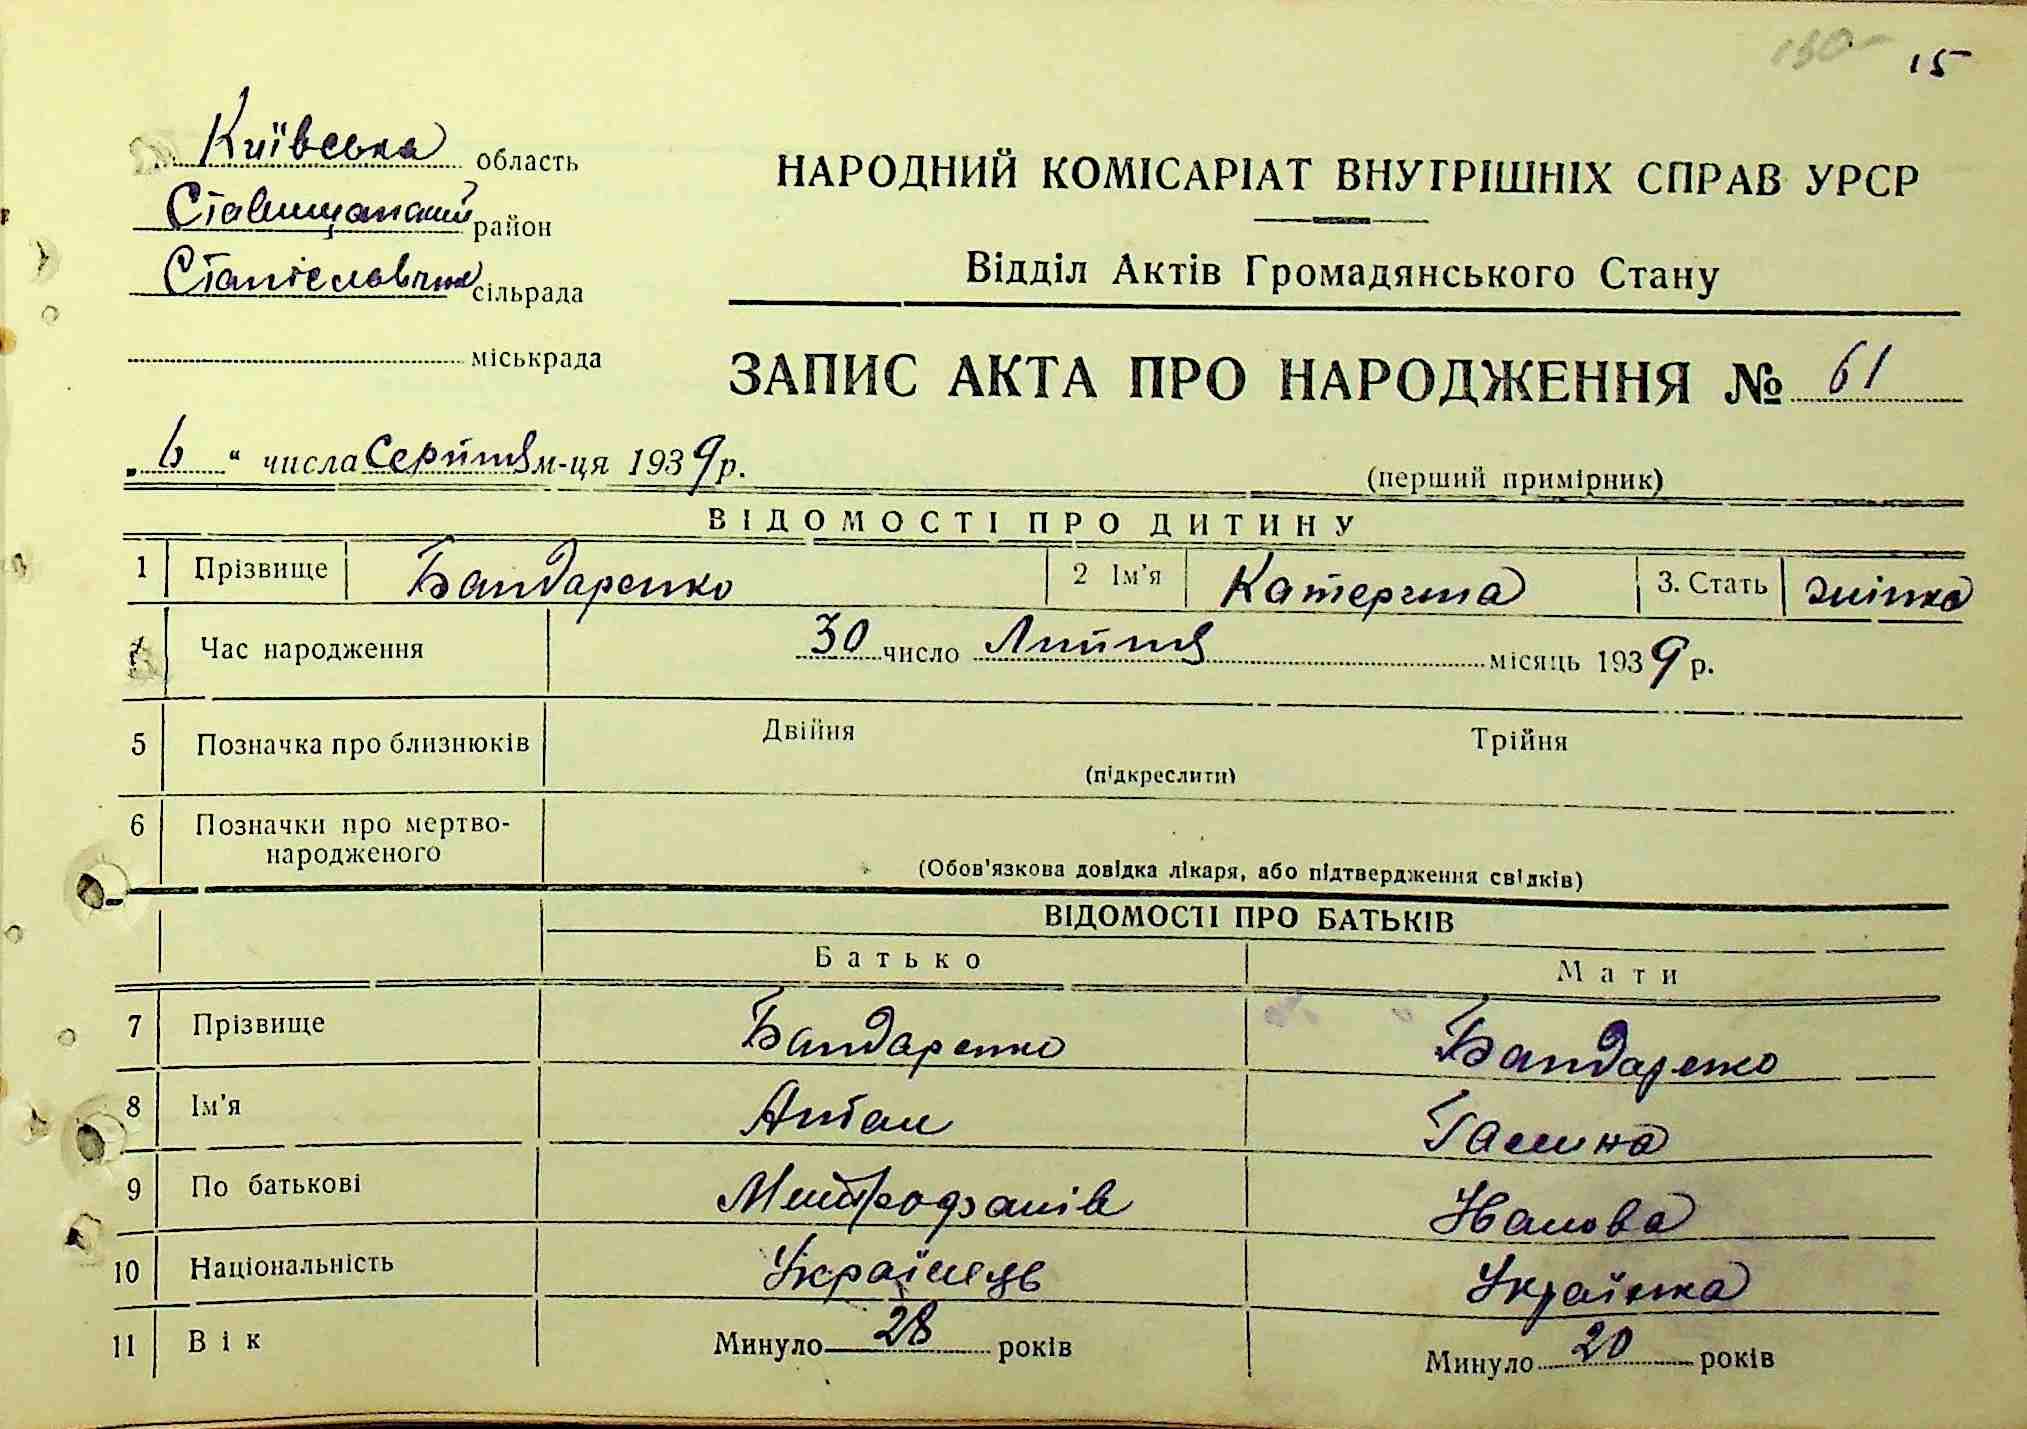 130- 15
Київська область
Ставищанський район
Станіславчик сільрада
міськрада
НАРОДНИЙ КОМІСАРІАТ ВНУТРІШНІХ СПРАВ УРСР
Відділ Актів Громадянського Стану
ЗАПИС АКТА ПРО НАРОДЖЕННЯ № 61
„ 6 “ числа Серпня м-ця 1939 р.
(перший примірник)
ВІДОМОСТІ ПРО ДИТИНУ
1 Прізвище Бандаренко 2 Ім'я Катерина 3. Стать жінка
4 Час народження 30 число Липня місяць 1939 р.
5 Позначка про близнюків Двійня Трійня
(підкреслити)
6 Позначки про мертво-
народженого
(Обов'язкова довідка лікаря, або підтвердження свідків)
ВІДОМОСТІ ПРО БАТЬКІВ
Батько Мати
7 Прізвище Бандаренко Бандаренко
8 Ім'я Антон Галина
9 По батькові Митрофанів Іванова
10 Національність Українець Українка
11 Вік Минуло 28 років Минуло 20 років